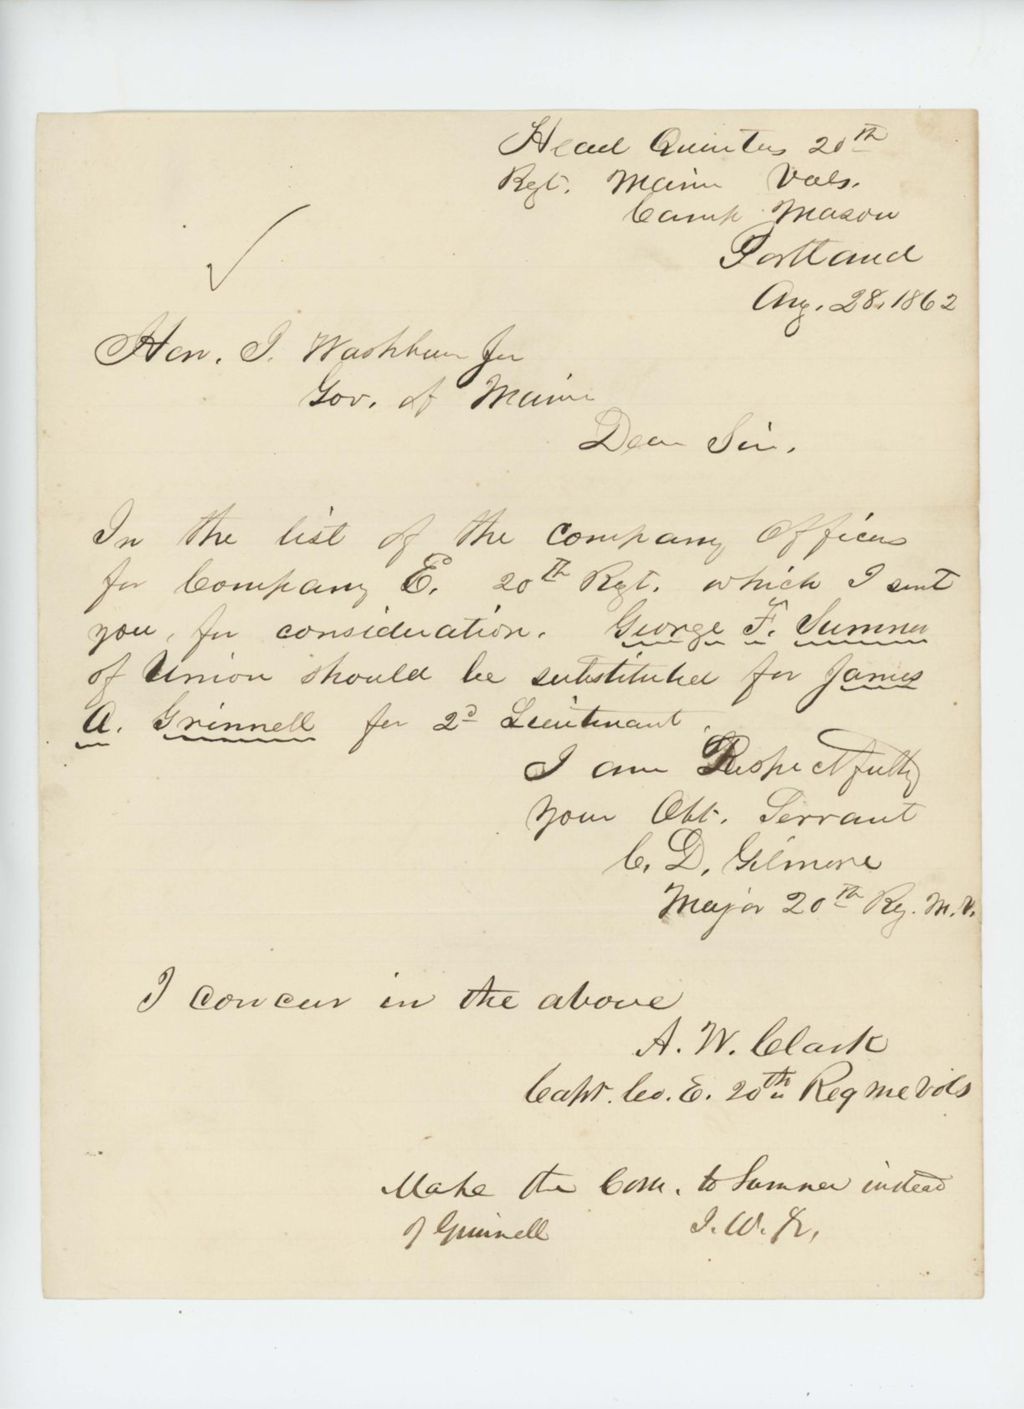 Head Quarters 20th
Regt. Maine Vols.
Camp Mason
Portland
Aug. 28, 1862
Hon. I. Washburn Jr
Gov. of Maine
Dear Sir.
In the list of the company Officers
for Company E. 20th Regt. which I sent
you, for consideration. George F. Sumner
of Union should be substituted for James
A. Grinnell for 2d Lieutenant.
I am Respectfully
your Obt. Servant
C. D. Gilmore
Major 20th Reg. M. V.
I concur in the above
A. W. Clark
Capt. Co. E. 20th Reg Me Vols
Make the Com. to Sumner instead
of Grinnell I. W. Jr,